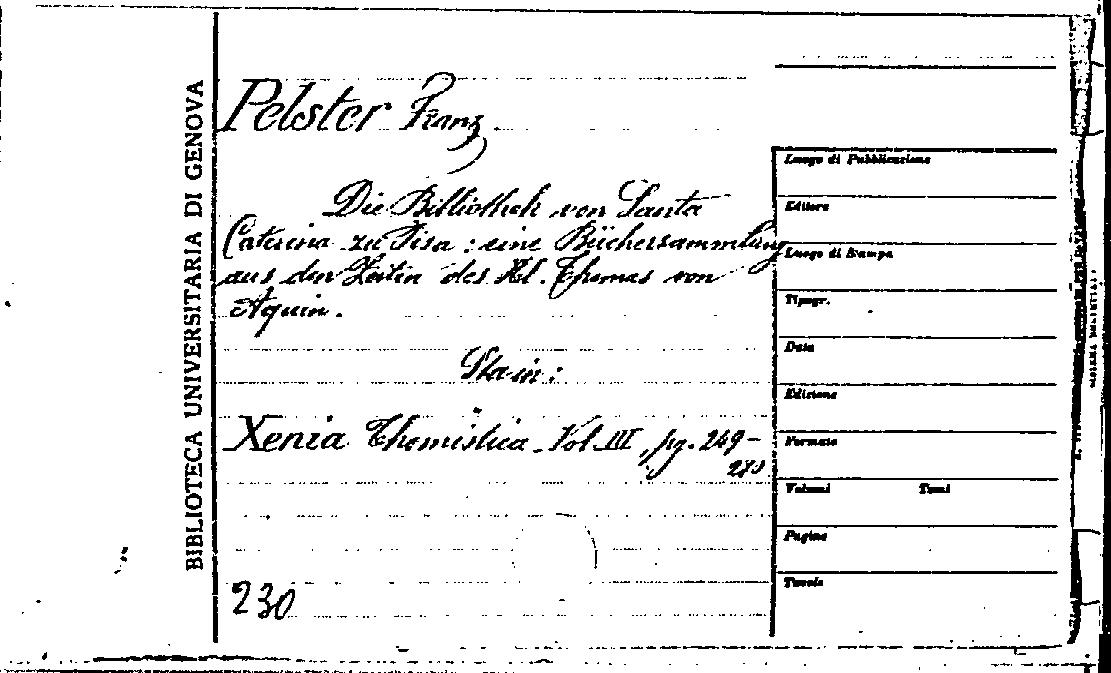 BIBLIOTECA UNIVERSITARIA DI GENOVA
Pelster Franz
Die Bibliothek von Santa
Caterina zu Pisa : eine Büchersammlung
aus den Zeiten des Hl. Thomas von
Aquin.
Sta in :
Xenia Thomistica Vol. III, pg. 249-
280
230
Luogo di Pubblicazione
Editore
Luogo di Stampa
Tipogr.
Data
Edizione
Formato
Volumi Tomi
Pagine
Tavole